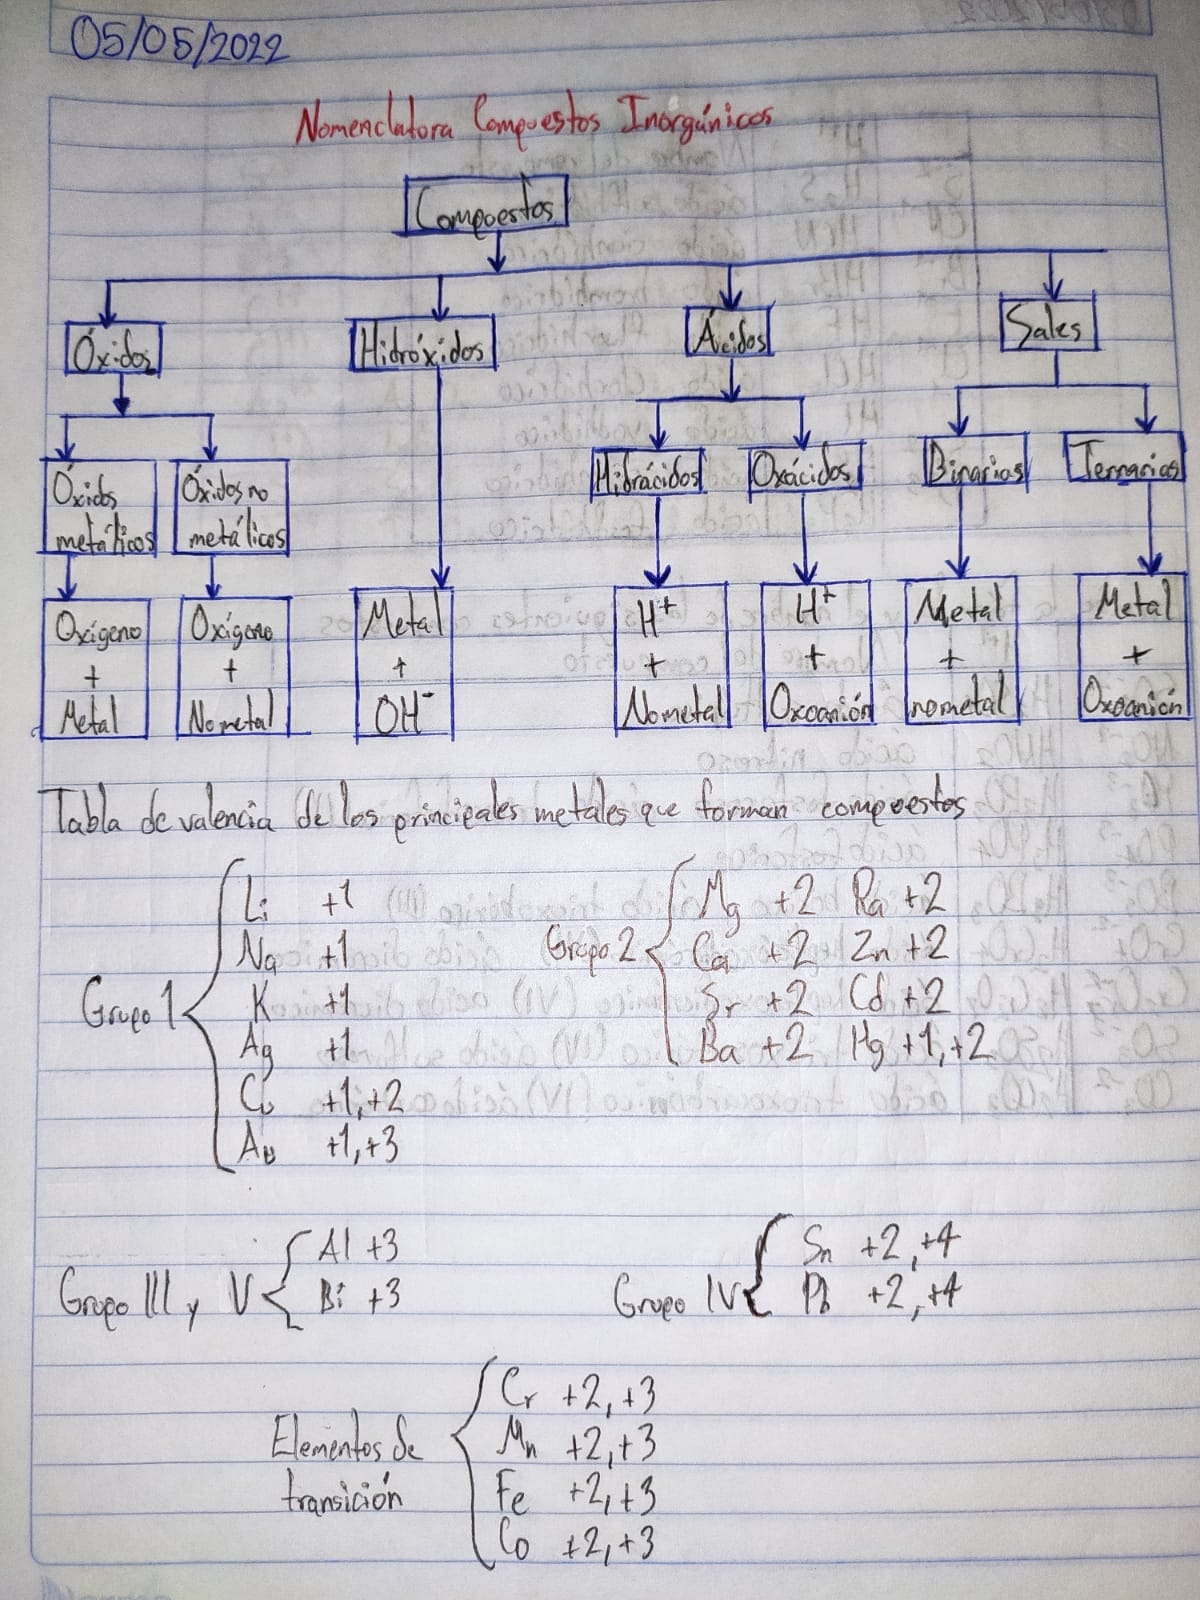 05/05/2022
Nomenclatora Compuestos Inorgánicos
Compuestos
Óxidos Hidróxidos Ácidos Sales
Óxidos metálicos
Óxidos no metálicos
Hidrácidos Oxácidos Binarias Ternarias
Oxígeno + Metal
Oxígeno + No metal
Metal + OH⁻
H⁺ + No metal
H⁺ + Oxoanión
Metal + nometal
Metal + Oxoanión
Tabla de valencia de los principales metales que forman compuestos
Grupo 1
Li +1
Na +1
K +1
Ag +1
Cu +1,+2
Au +1,+3
Grupo 2
Mg +2 Ra +2
Ca +2 Zn +2
Sr +2 Cd +2
Ba +2 Hg +1,+2
Grupo III y V
Al +3
Bi +3
Grupo IV
Sn +2,+4
Pb +2,+4
Elementos de
transición
Cr +2,+3
Mn +2,+3
Fe +2,+3
Co +2,+3